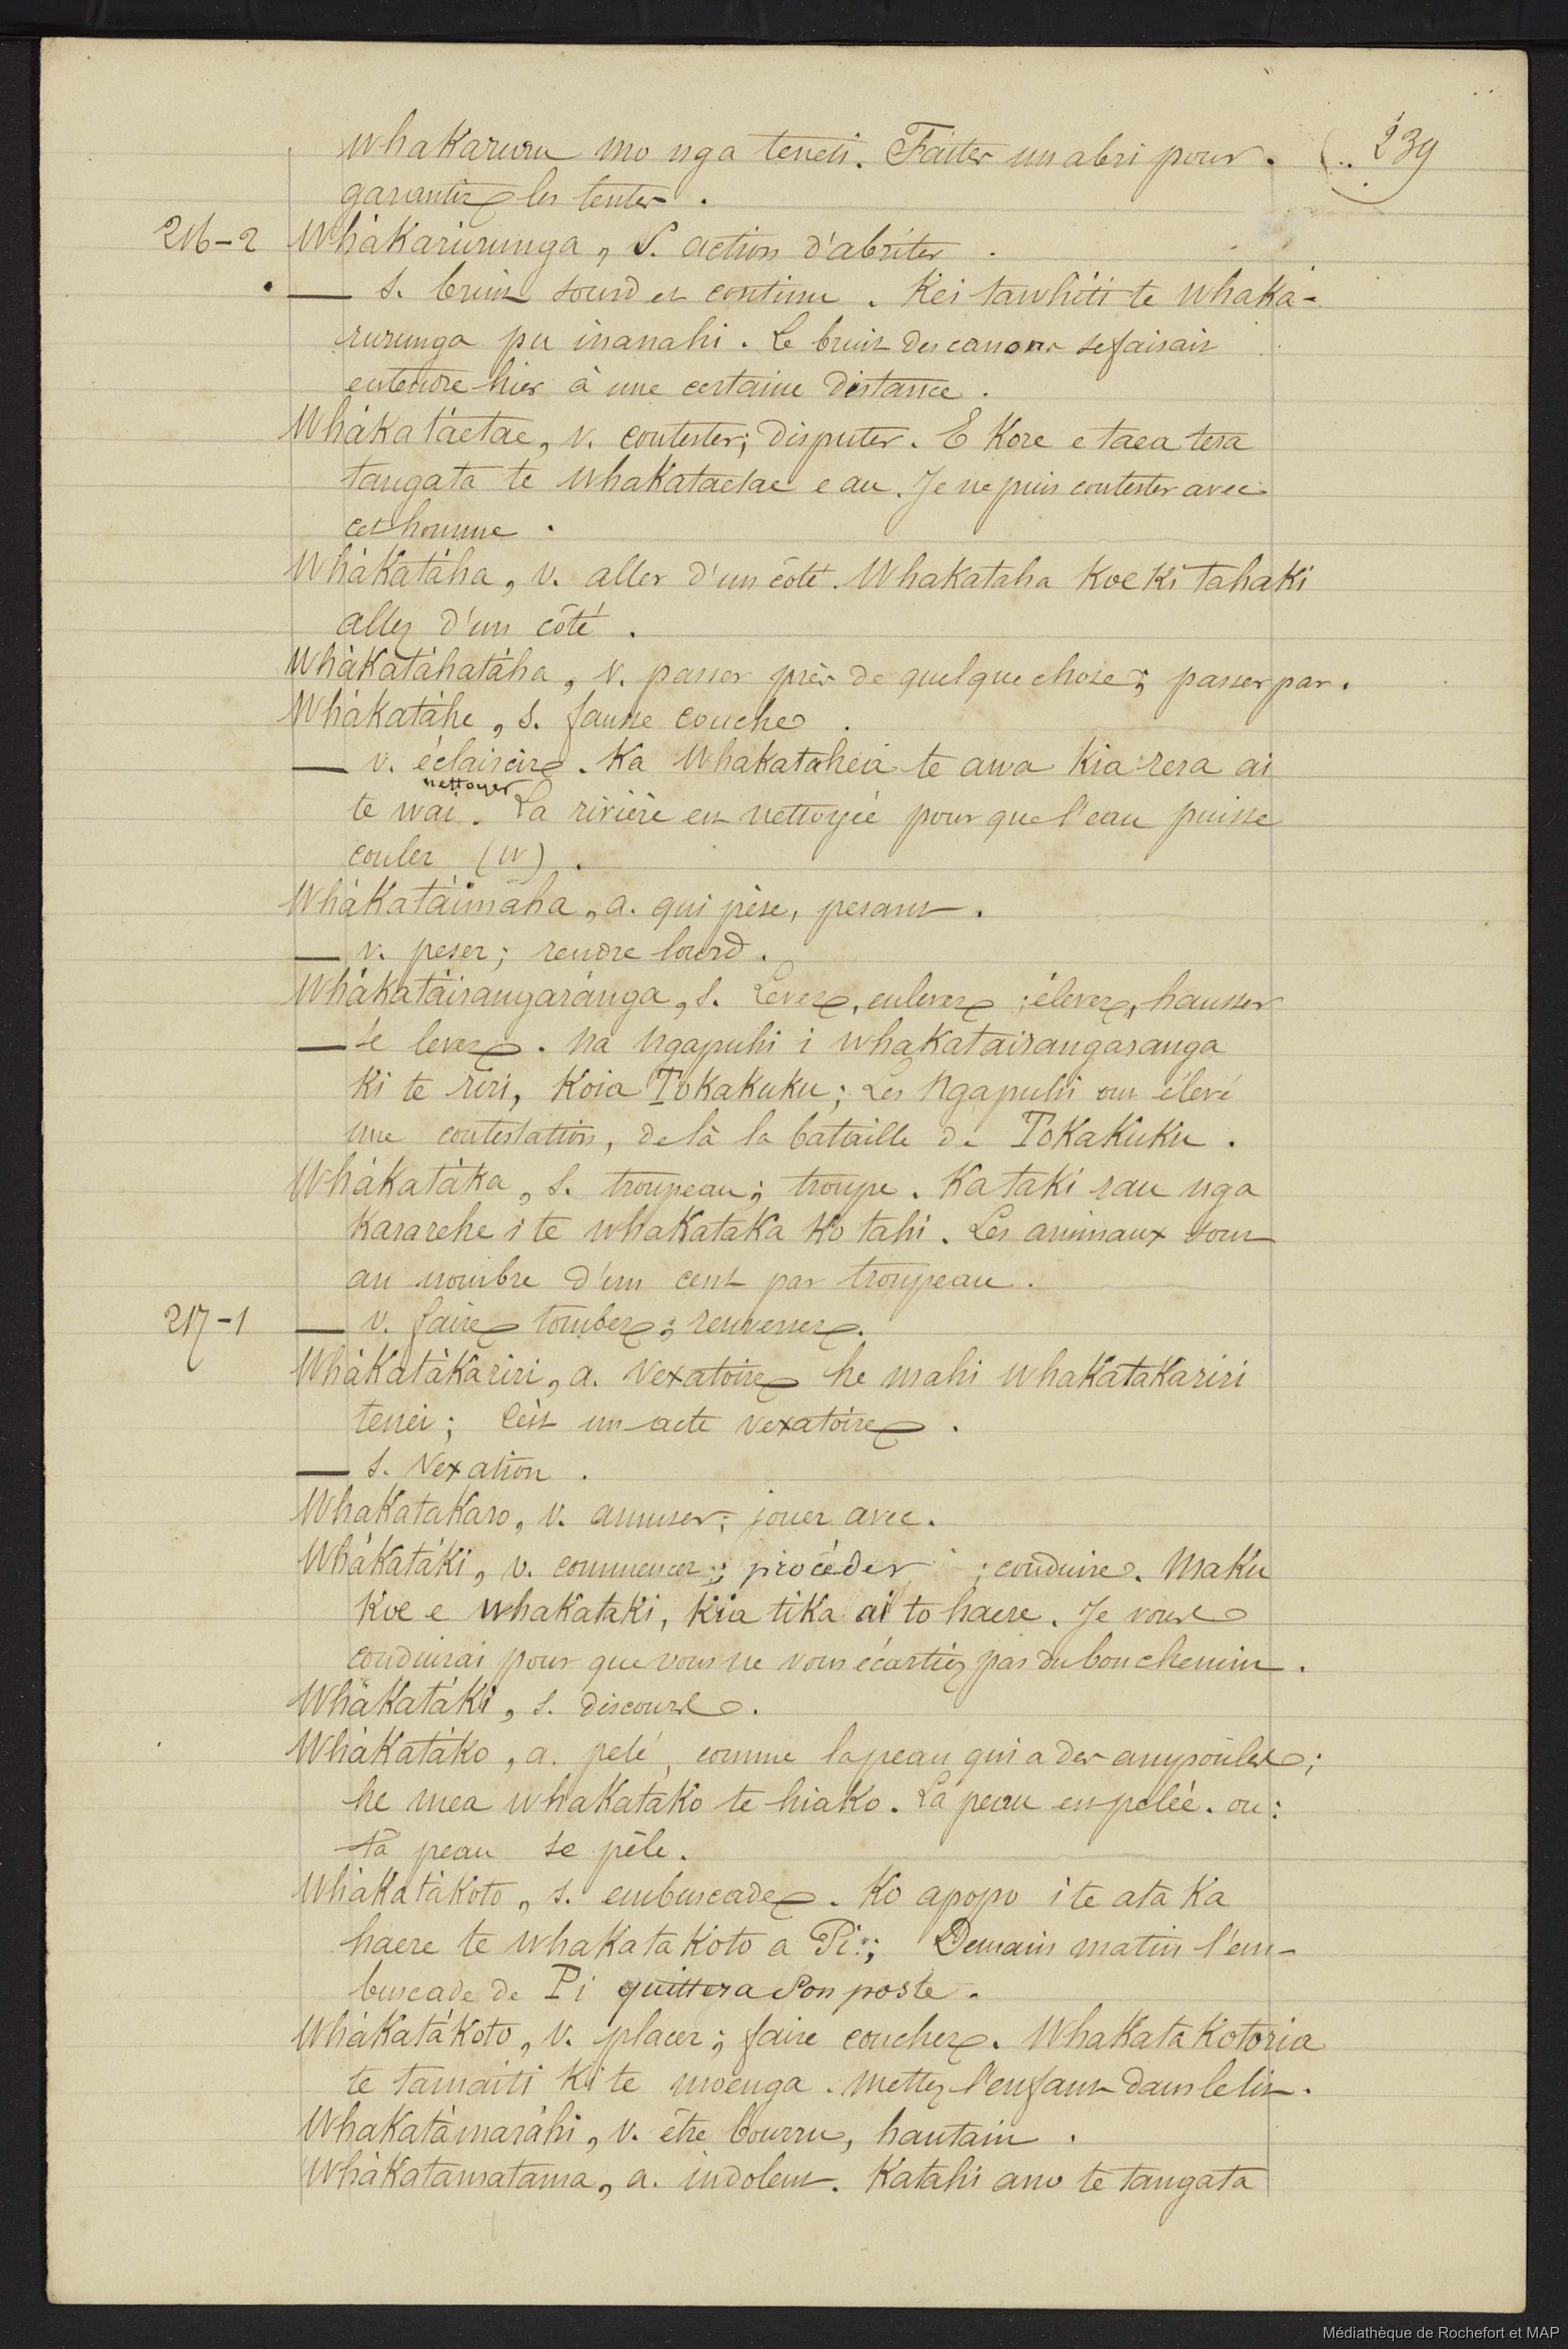 239
whakaruru mo nga teneti. Faites un abri pour
garantir les tentes.
216-2 Whàkarùrunga, S. action d'abriter.
— s. bruit sourd et continu. Kei tawhiti te whaka-
rurunga pu inanahi. Le bruit des canons se faisait
entendre hier à une certaine distance.
Whàkatáetae, v. contester; disputer. E kore e taea tera
tangata te whakataetae e au. Je ne puis contester avec
cet homme.
Whàkatáha, v. aller d'un côté. Whakataha koe ki tahaki
allez d'un côté.
Whàkatáhatáha, v. passer près de quelque chose; passer par.
Whàkatáhe, s. fausse couche.
— v. éclaircir. Ka whakataheia te awa kia rera ai
nettoyer
te wai. La rivière est nettoyée pour que l'eau puisse
couler (W).
Whàkatáimaha, a. qui pèse, pesant.
— v. peser; rendre lourd.
Whàkatáirangaránga, s. Lever, enlever; élever, hausser
— se lever. Na Ngapuhi i whakatairangaranga
ki te riri, koia Tokakuku; Les Ngapuhi ont élevé
une contestation, de là la bataille de Tokakuku.
Whàkatàka, s. troupeau; troupe. Ka taki rau nga
kararehe i te whakataka ko tahi. Les animaux sont
au nombre d'un cent par troupeau.
217-1 — v. faire tomber; renverser.
Whàkatàkariri, a. Vexatoire he mahi whakatakariri
tenei; C'est un acte vexatoire.
— s. Vexation.
Whakatakaro, v. amuser; jouer avec.
Whàkatáki, v. commencer; procéder; conduire. Maku
koe e whakataki, kia tika ai to haere. Je vous
conduirai pour que vous ne vous écartiez pas du bon chemin.
Whàkatáki, s. discours.
Whàkatáko, a. pelé, comme la peau qui a des ampoules;
he mea whakatako te hiako. La peau est pelée. ou:
la peau se pèle.
Whàkatàkoto, s. embuscade. Ko apopo i te ata ka
haere te whakatakoto a Pi; Demain matin l'em-
buscade de Pi quittera son poste.
Whàkatàkoto, v. placer; faire coucher. Whakatakotoria
te tamaiti ki te moenga. Mettez l'enfant dans le lit.
Whakatàmaràhi, v. être bourru, hautain.
Whàkatamatama, a. indolent. Katahi ano te tangata
Médiathèque de Rochefort et MAP